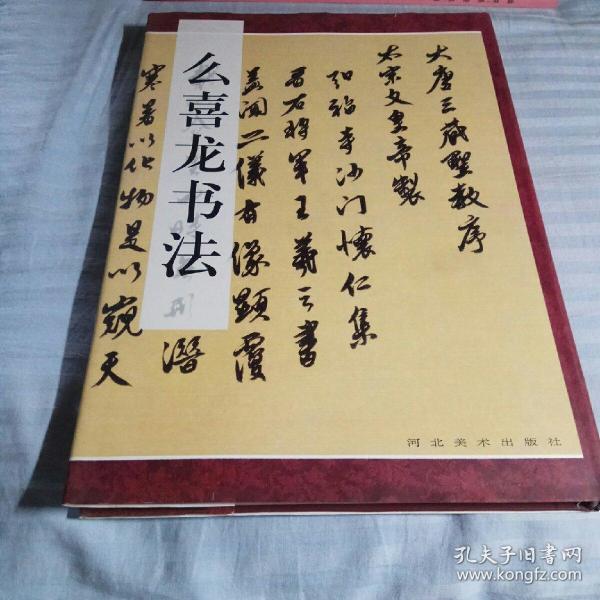 么喜龙书法
大唐三藏聖教序
太宗文皇帝製
弘福寺沙门懷仁集
晋右将军王羲之書
盖闻二儀有像顯覆
潛
寒暑以化物是以窥天
河北美术出版社
孔夫子旧书网
www.kongfz.com